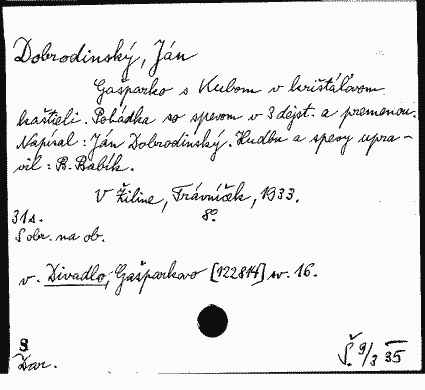 Dobrodinský, Ján
Gašparko s Kubom v krištáľovom
kaštieli. Pohádka so spevom v 3 dejst. a premenou.
Napísal: Ján Dobrodinský. Hudbu a spevy upra-
vil: B. Babík.
V Žiline, Trávníček, 1933.
31 s. 8°.
S obr. na ob.
v. Divadlo, Gašparkovo [122814] sv. 16.
8
Dar. Š. 9/3 35